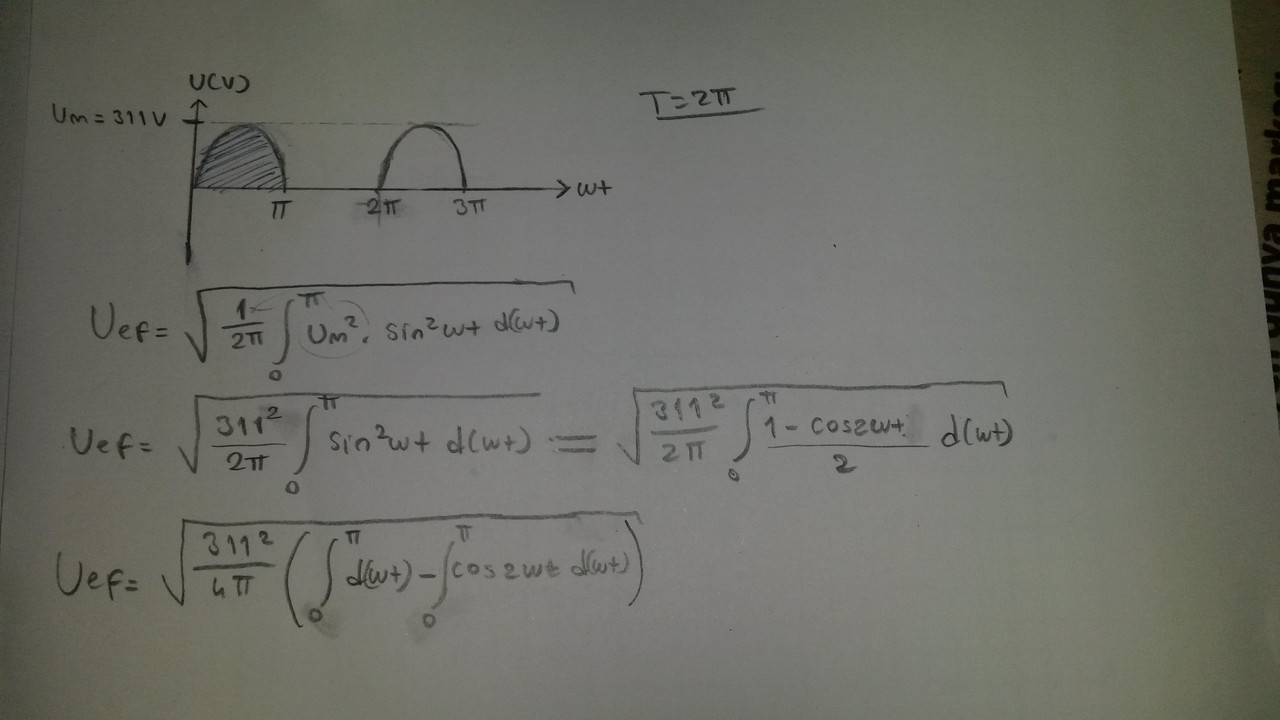 U(V)
Um = 311V
T=2π
ωt
π 2π 3π
Uef = √(1/2π ∫₀^π Um². sin²ωt d(ωt))
Uef = √(311²/2π ∫₀^π sin²ωt d(ωt)) = √(311²/2π ∫₀^π (1-cos2ωt)/2 d(ωt))
Uef = √(311²/4π (∫₀^π d(ωt) - ∫₀^π cos2ωt d(ωt)))